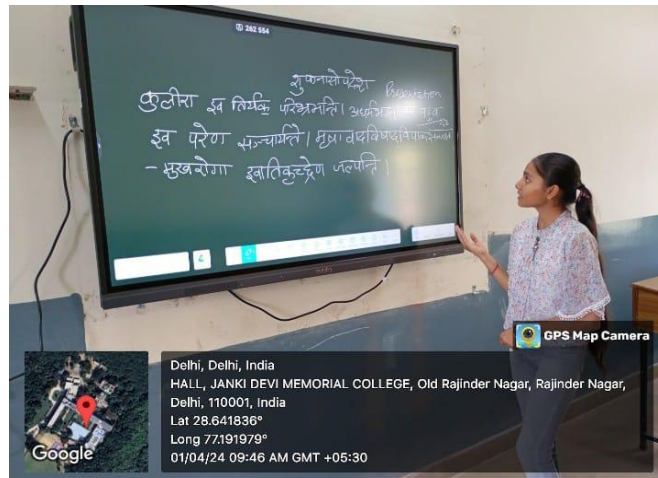 262 554
शुकनासोपदेश Presentation
कुलीरा इव तिर्यक् परिभ्रमन्ति।
इव परेण सञ्चार्यन्ते। मृषावादविषविपाकसञ्जात
- मुखरोगा इवातिकृच्छ्रेण जल्पन्ति।
GPS Map Camera
Delhi, Delhi, India
HALL, JANKI DEVI MEMORIAL COLLEGE, Old Rajinder Nagar, Rajinder Nagar,
Delhi, 110001, India
Lat 28.641836°
Long 77.191979°
01/04/24 09:46 AM GMT +05:30
Google